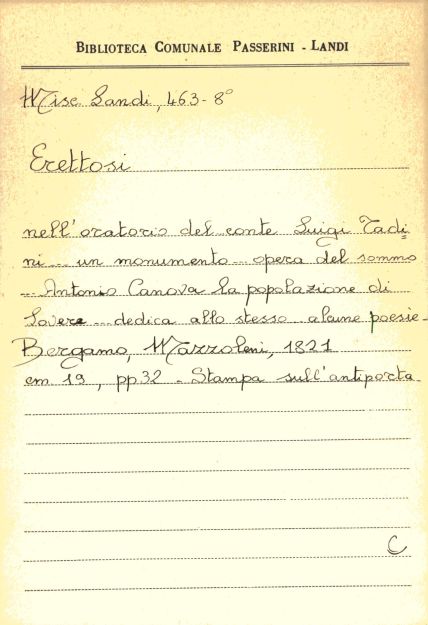 BIBLIOTECA COMUNALE PASSERINI - LANDI
Misc. Landi, 463-8°
Erettosi
nell'oratorio del conte Luigi Tadi=
ni ... un monumento ... opera del sommo
... Antonio Canova la popolazione di
Lovere ... dedica allo stesso alcune poesie -
Bergamo, Mazzoleni, 1821
cm 19, pp 32 - Stampa sull'antiporta.
C